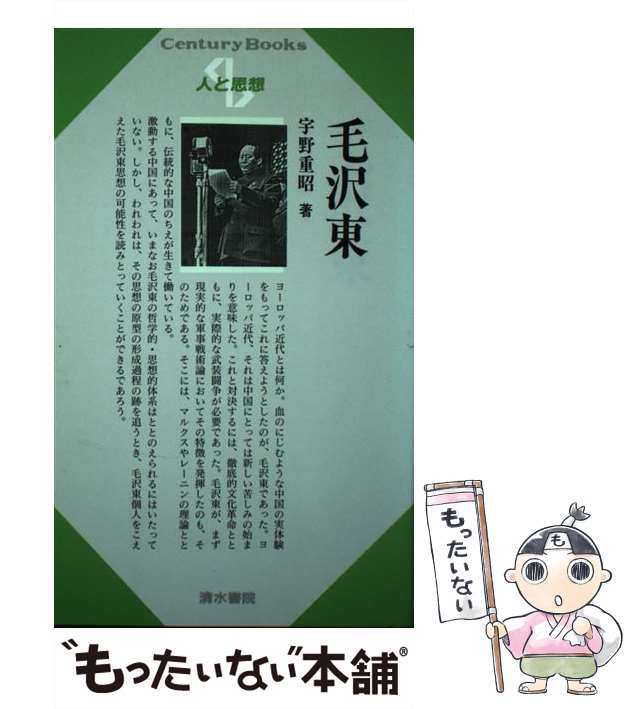 Century Books
人と思想
毛沢東
宇野重昭 著
ヨーロッパ近代とは何か。血のにじむような中国の実体験
をもってこれに答えようとしたのが、毛沢東であった。ヨ
ーロッパ近代、それは中国にとっては新しい苦しみの始ま
りを意味した。これと対決するには、徹底的文化革命とと
もに、実際的な武装闘争が必要であった。毛沢東が、まず
現実的な軍事戦術論においてその特徴を発揮したのも、そ
のためである。そこには、マルクスやレーニンの理論とと
もに、伝統的な中国のちえが生きて働いている。
激動する中国にあって、いまなお毛沢東の哲学的・思想的体系はととのえられるにはいたって
いない。しかし、われわれは、その思想の原型の形成過程の跡を追うとき、毛沢東個人をこ
えた毛沢東思想の可能性を読みとっていくことができるであろう。
清水書院
“もったいない”本舗®
もったいない
も